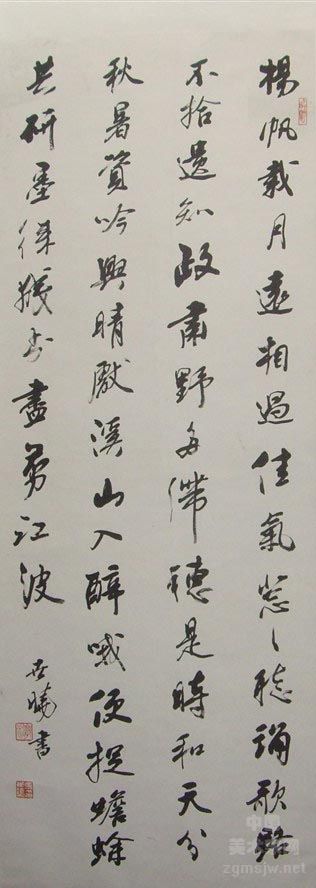 楊帆載月遠相過佳氣葱〻聽誦歌路
不拾遺知政肅野多滯穗是時和天分
秋暑資吟興晴獻溪山入醉哦便捉蟾蜍
共研墨綵牋書盡剪江波
世書
中国
美术家网
zgmsjw.net